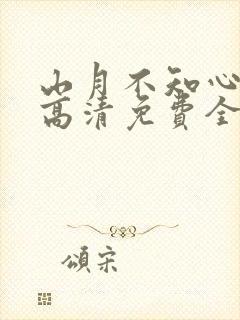 山月不知心
高清免費全
頌宋